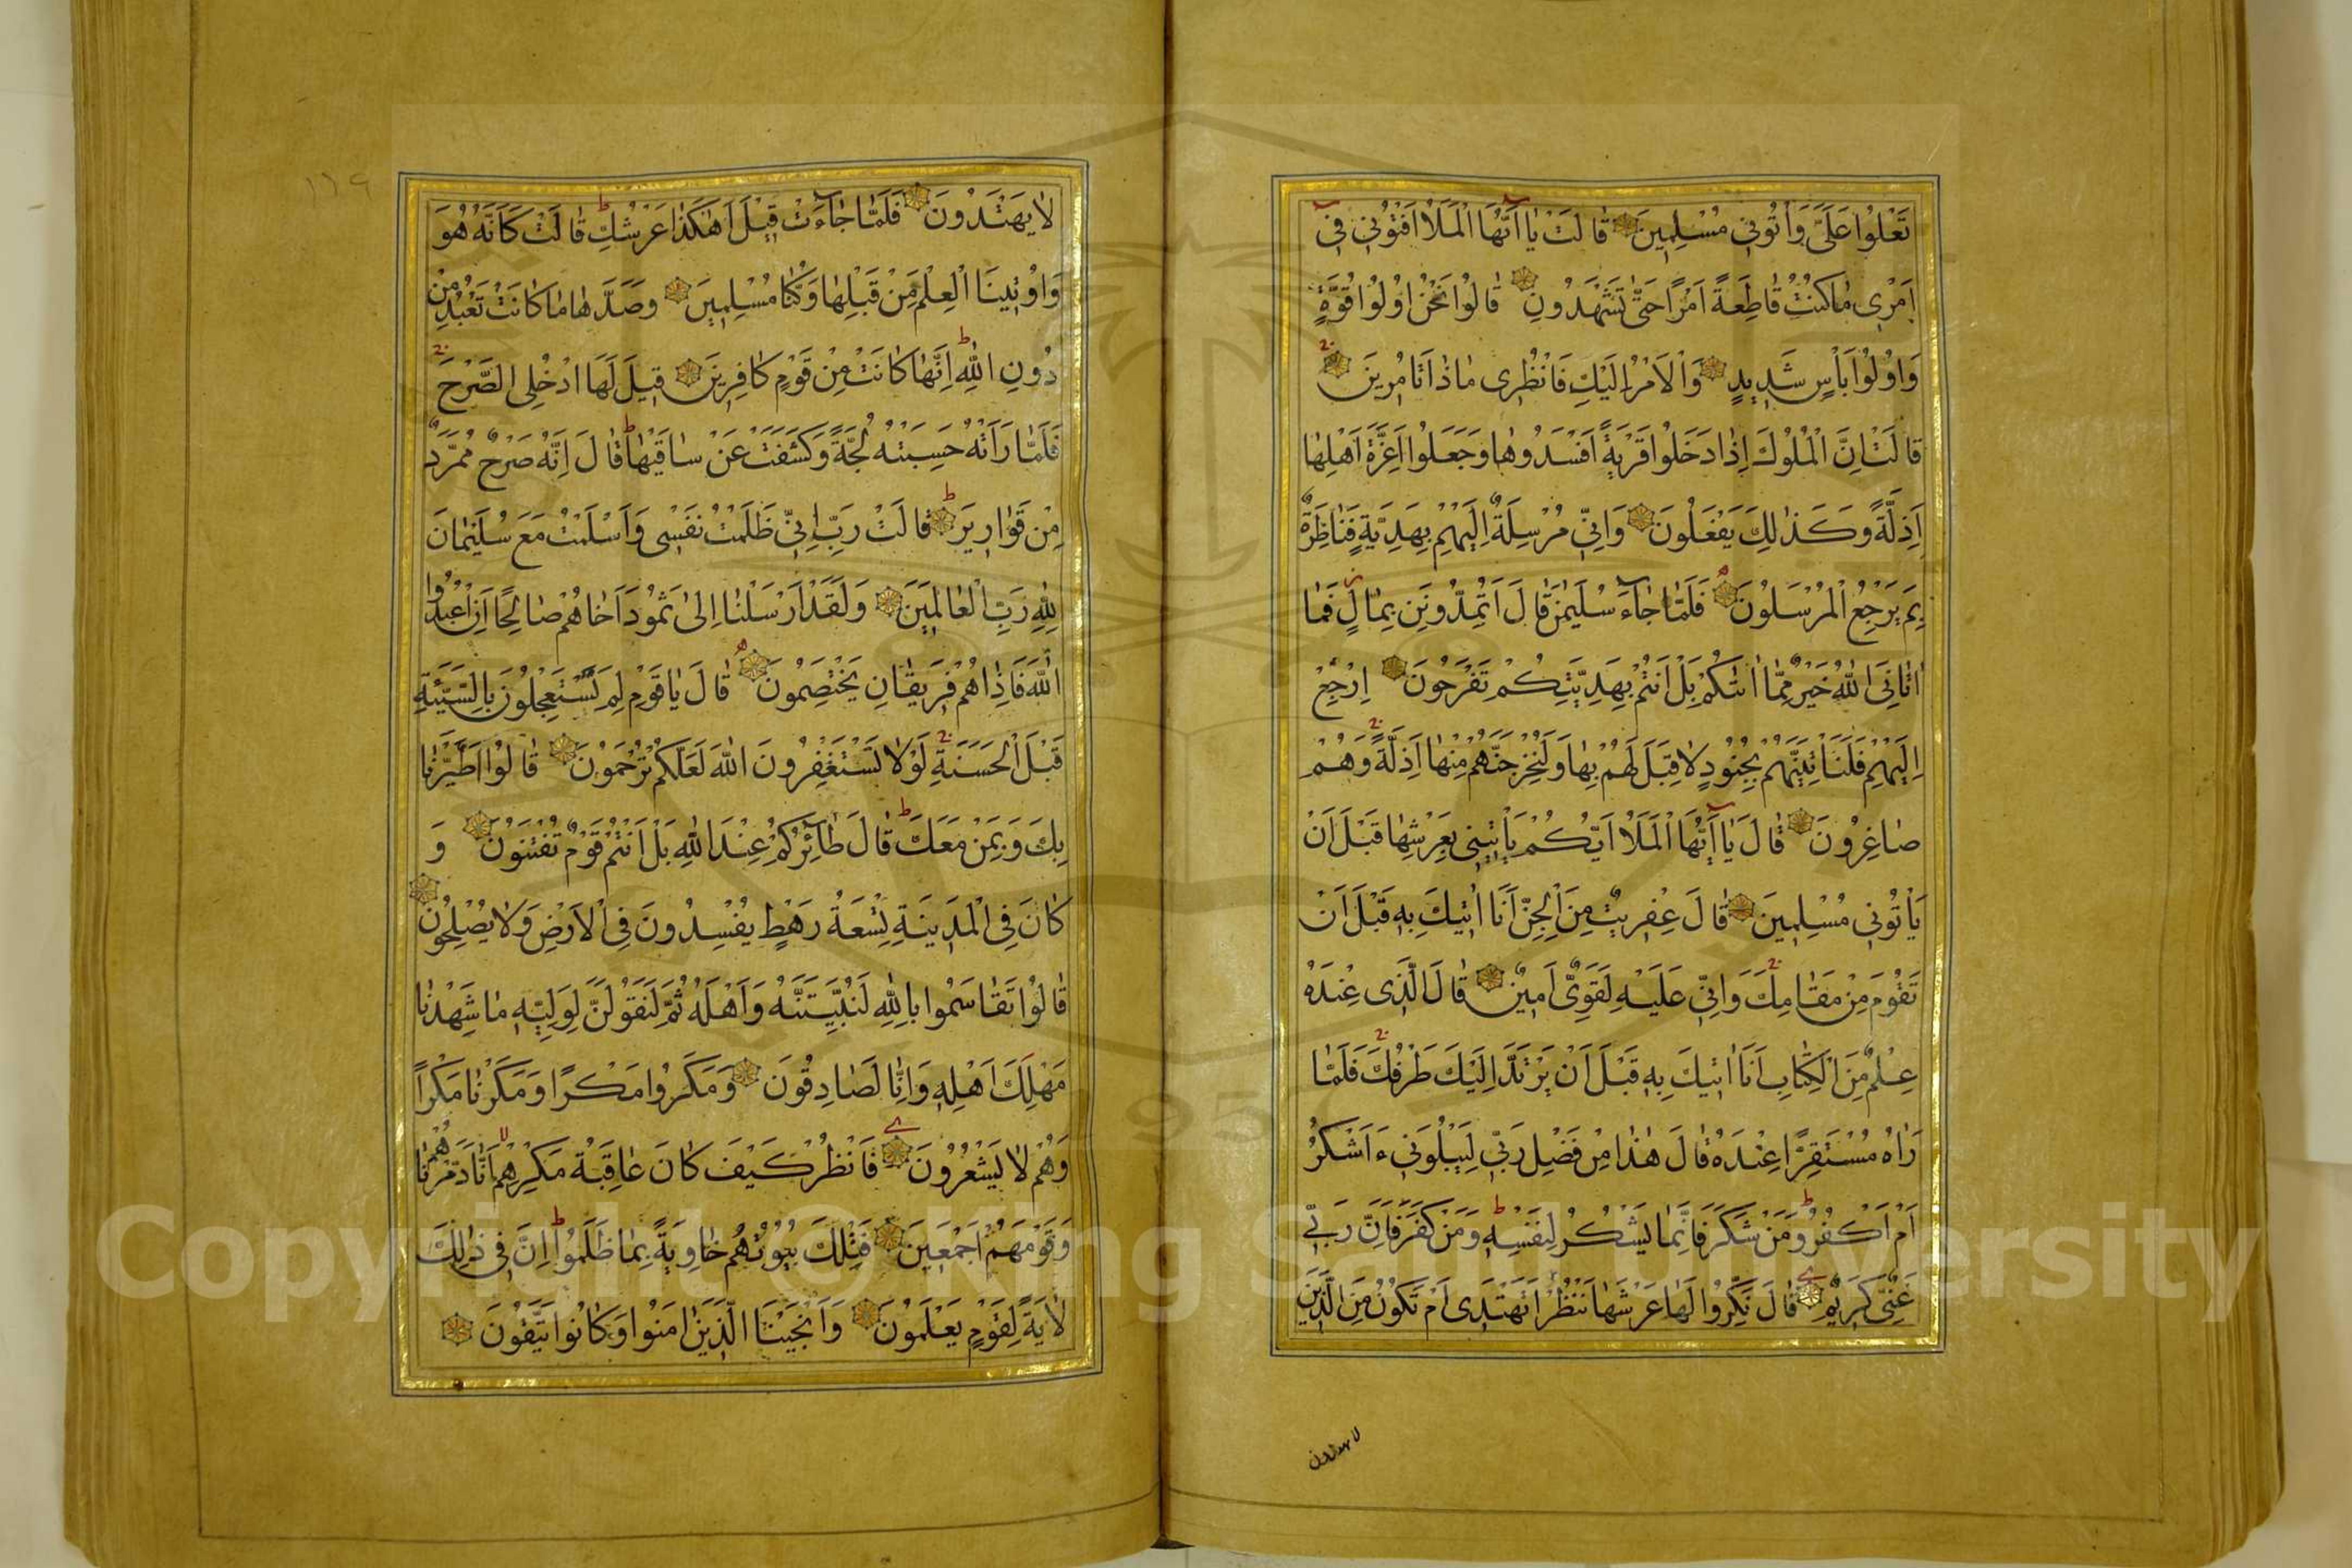 تَعْلُوا عَلَىَّ وَاْتُونِي مُسْلِمِينَ قَالَتْ يَا اَيُّهَا الْمَلَأُ اَفْتُونِي فِي
اَمْرِي مَا كُنْتُ قَاطِعَةً اَمْرًا حَتَّى تَشْهَدُونِ قَالُوا نَحْنُ اُولُوا قُوَّةٍ
وَاُولُوا بَأْسٍ شَدِيدٍ وَالْاَمْرُ اِلَيْكِ فَانْظُرِي مَاذَا تَأْمُرِينَ
قَالَتْ اِنَّ الْمُلُوكَ اِذَا دَخَلُوا قَرْيَةً اَفْسَدُوهَا وَجَعَلُوا اَعِزَّةَ اَهْلِهَا
اَذِلَّةً وَكَذٰلِكَ يَفْعَلُونَ وَاِنِّي مُرْسِلَةٌ اِلَيْهِمْ بِهَدِيَّةٍ فَنَاظِرَةٌ
بِمَ يَرْجِعُ الْمُرْسَلُونَ فَلَمَّا جَآءَ سُلَيْمٰنَ قَالَ اَتُمِدُّونَنِ بِمَالٍ فَمَا
اٰتَانِيَ اللّٰهُ خَيْرٌ مِمَّا اٰتٰىكُمْ بَلْ اَنْتُمْ بِهَدِيَّتِكُمْ تَفْرَحُونَ اِرْجِعْ
اِلَيْهِمْ فَلَنَأْتِيَنَّهُمْ بِجُنُودٍ لَا قِبَلَ لَهُمْ بِهَا وَلَنُخْرِجَنَّهُمْ مِنْهَا اَذِلَّةً وَهُمْ
صَاغِرُونَ قَالَ يَا اَيُّهَا الْمَلَأُ اَيُّكُمْ يَأْتِينِي بِعَرْشِهَا قَبْلَ اَنْ
يَأْتُونِي مُسْلِمِينَ قَالَ عِفْرِيتٌ مِنَ الْجِنِّ اَنَا اٰتِيكَ بِهِ قَبْلَ اَنْ
تَقُومَ مِنْ مَقَامِكَ وَاِنِّي عَلَيْهِ لَقَوِيٌّ اَمِينٌ قَالَ الَّذِي عِنْدَهُ
عِلْمٌ مِنَ الْكِتَابِ اَنَا اٰتِيكَ بِهِ قَبْلَ اَنْ يَرْتَدَّ اِلَيْكَ طَرْفُكَ فَلَمَّا
رَاٰهُ مُسْتَقِرًّا عِنْدَهُ قَالَ هٰذَا مِنْ فَضْلِ رَبِّي لِيَبْلُوَنِي ءَاَشْكُرُ
اَمْ اَكْفُرُ وَمَنْ شَكَرَ فَاِنَّمَا يَشْكُرُ لِنَفْسِهِ وَمَنْ كَفَرَ فَاِنَّ رَبِّي
غَنِيٌّ كَرِيمٌ قَالَ نَكِّرُوا لَهَا عَرْشَهَا نَنْظُرْ اَتَهْتَدِي اَمْ تَكُونُ مِنَ الَّذِينَ
لا يهتدون
١٦٩
لَا يَهْتَدُونَ فَلَمَّا جَآءَتْ قِيلَ اَهٰكَذَا عَرْشُكِ قَالَتْ كَاَنَّهُ هُوَ
وَاُوتِينَا الْعِلْمَ مِنْ قَبْلِهَا وَكُنَّا مُسْلِمِينَ وَصَدَّهَا مَا كَانَتْ تَعْبُدُ مِنْ
دُونِ اللّٰهِ اِنَّهَا كَانَتْ مِنْ قَوْمٍ كَافِرِينَ قِيلَ لَهَا ادْخُلِي الصَّرْحَ
فَلَمَّا رَاَتْهُ حَسِبَتْهُ لُجَّةً وَكَشَفَتْ عَنْ سَاقَيْهَا قَالَ اِنَّهُ صَرْحٌ مُمَرَّدٌ
مِنْ قَوَارِيرَ قَالَتْ رَبِّ اِنِّي ظَلَمْتُ نَفْسِي وَاَسْلَمْتُ مَعَ سُلَيْمَانَ
لِلّٰهِ رَبِّ الْعَالَمِينَ وَلَقَدْ اَرْسَلْنَا اِلَى ثَمُودَ اَخَاهُمْ صَالِحًا اَنِ اعْبُدُوا
اللّٰهَ فَاِذَا هُمْ فَرِيقَانِ يَخْتَصِمُونَ قَالَ يَا قَوْمِ لِمَ تَسْتَعْجِلُونَ بِالسَّيِّئَةِ
قَبْلَ الْحَسَنَةِ لَوْلَا تَسْتَغْفِرُونَ اللّٰهَ لَعَلَّكُمْ تُرْحَمُونَ قَالُوا اطَّيَّرْنَا
بِكَ وَبِمَنْ مَعَكَ قَالَ طَآئِرُكُمْ عِنْدَ اللّٰهِ بَلْ اَنْتُمْ قَوْمٌ تُفْتَنُونَ وَ
كَانَ فِي الْمَدِينَةِ تِسْعَةُ رَهْطٍ يُفْسِدُونَ فِي الْاَرْضِ وَلَا يُصْلِحُونَ
قَالُوا تَقَاسَمُوا بِاللّٰهِ لَنُبَيِّتَنَّهُ وَاَهْلَهُ ثُمَّ لَنَقُولَنَّ لِوَلِيِّهِ مَا شَهِدْنَا
مَهْلِكَ اَهْلِهِ وَاِنَّا لَصَادِقُونَ وَمَكَرُوا مَكْرًا وَمَكَرْنَا مَكْرًا
وَهُمْ لَا يَشْعُرُونَ فَانْظُرْ كَيْفَ كَانَ عَاقِبَةُ مَكْرِهِمْ اَنَّا دَمَّرْنَاهُمْ
وَقَوْمَهُمْ اَجْمَعِينَ فَتِلْكَ بُيُوتُهُمْ خَاوِيَةً بِمَا ظَلَمُوا اِنَّ فِي ذٰلِكَ
لَاٰيَةً لِقَوْمٍ يَعْلَمُونَ وَاَنْجَيْنَا الَّذِينَ اٰمَنُوا وَكَانُوا يَتَّقُونَ
Copyright © King Saud University